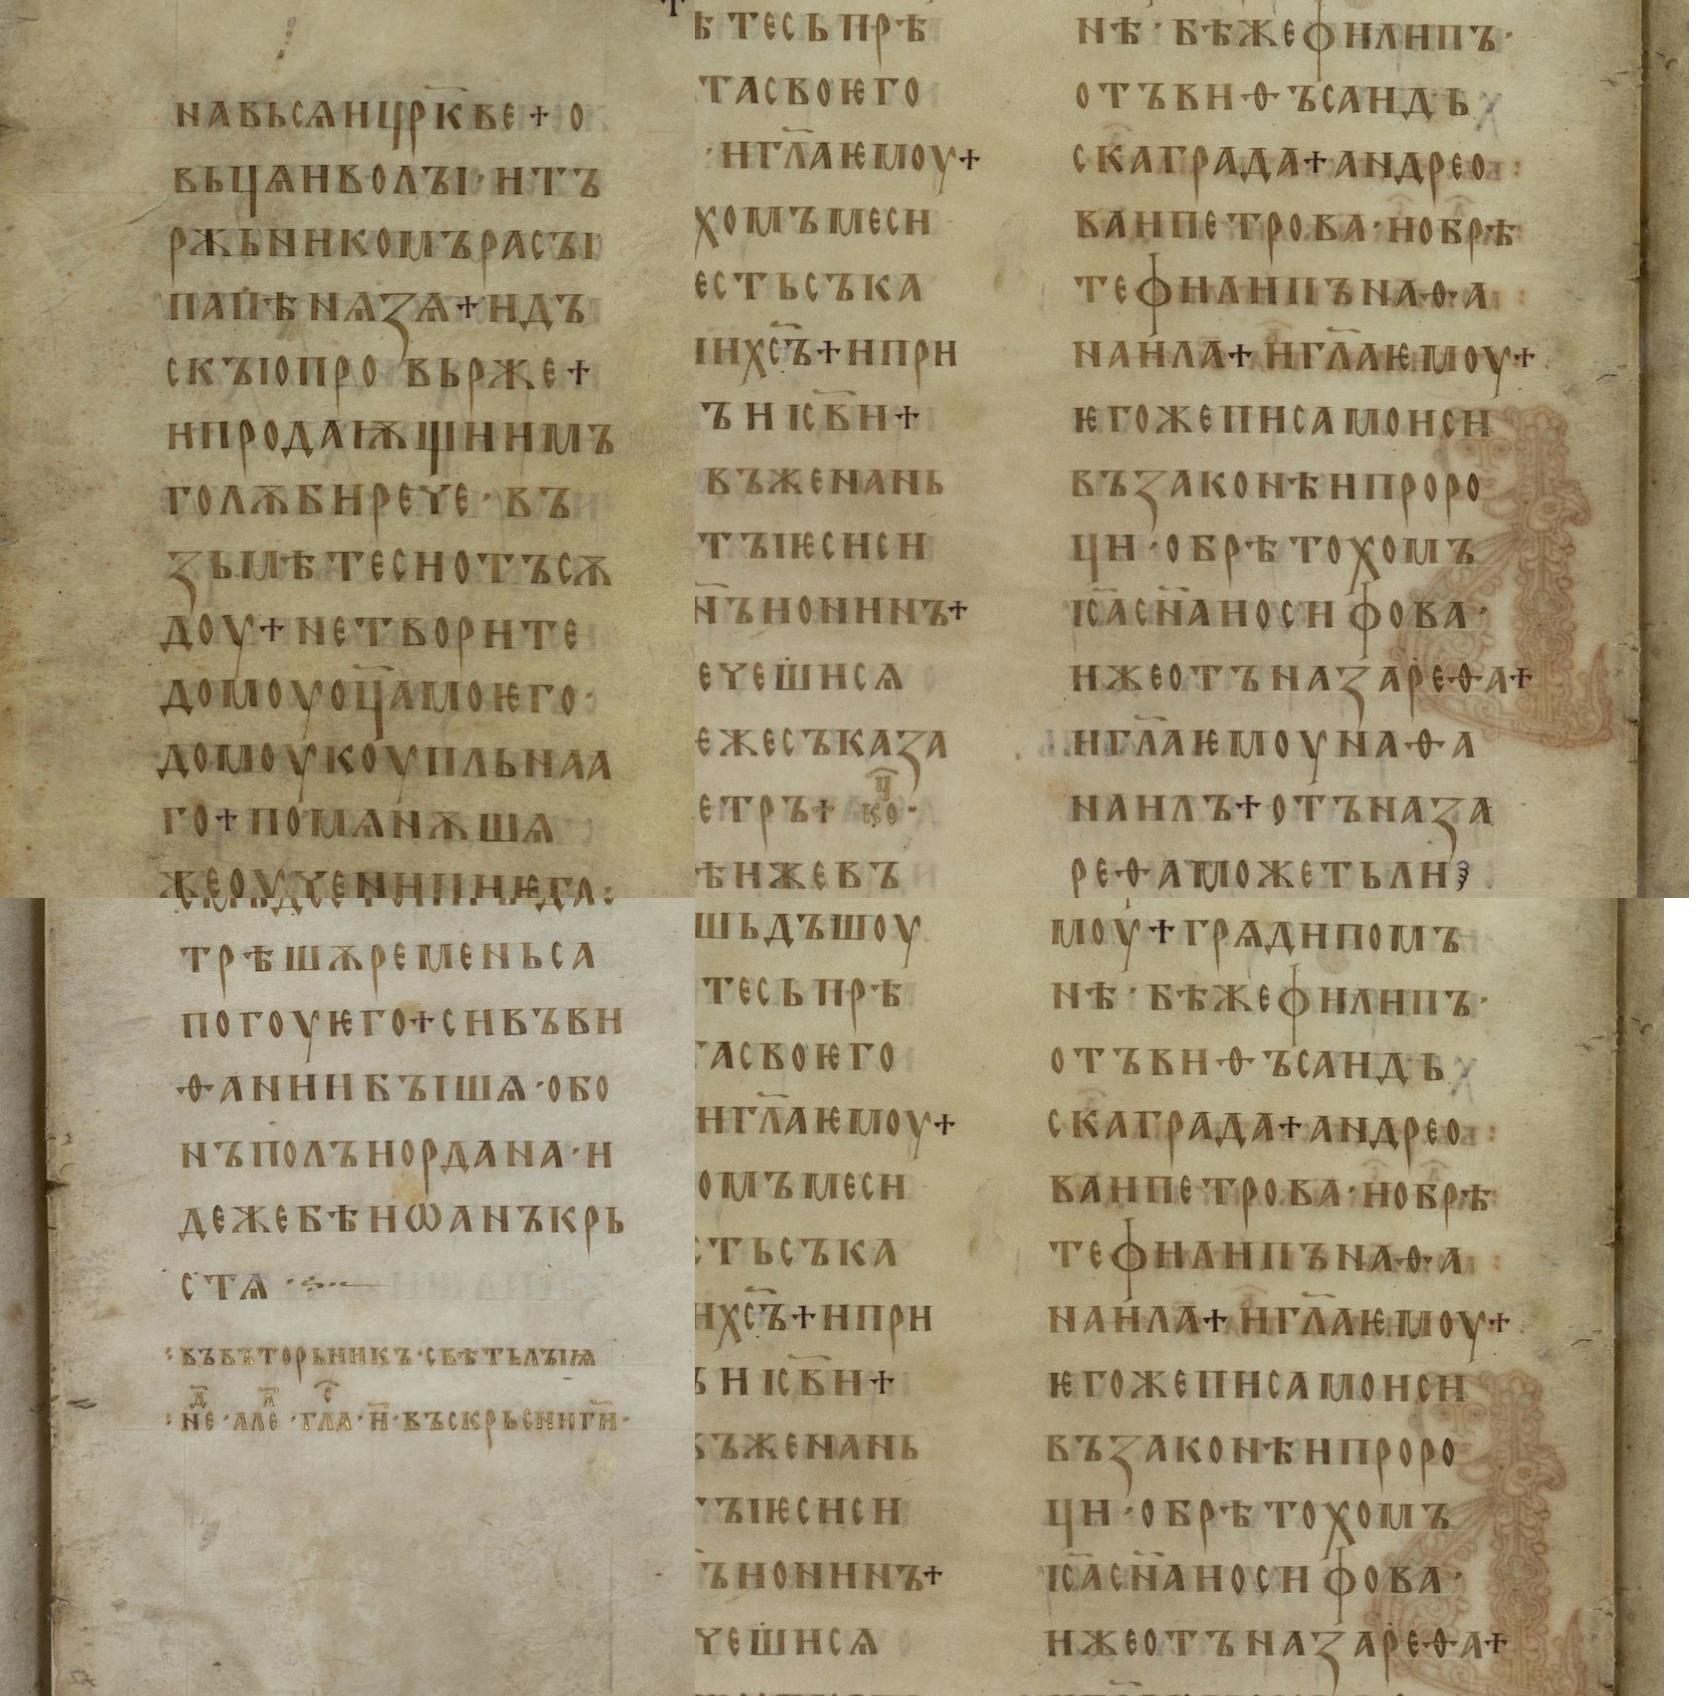 навьсѧицр҃кве + о
вьцѧиволꙑ · итъ
ржьникомърасꙑ
папѣнѧзѧ + идъ
скꙑопровьрже +
ипродаѭщиимъ
голѫбирече · въ
зьмѣтесиотъсѫ
доу + нетворите
домоуоц҃амоѥго ·
домоукоупльнаа
го + помѧнѫшѧ
жеоученициѥго :
трѣшѫременьса
погоуѥго + сивъви
ѳаниибꙑшѧ · обо
нъполъиордана · и
дежебѣиѡанъкрь
стѧ ·
: въвъторьникъ · свѣтьлꙑꙗ
: не · але · гла · н҃ · въскрьсниг҃и ·
ѣтесьпрѣ
тасвоѥго
· иг҃лаѥмоу +
хомъмеси
естьсъка
ихс҃ъ + ипри
ъиіс҃ви +
въженань
тꙑѥсиси
н҃ъиониинъ +
ечешисѧ
ежесъказа
етръ +
ѣижевъ
шьдъшоу
тесьпрѣ
асвоѥго
иг҃лаѥмоу +
омъмеси
тьсъка
ихс҃ъ + ипри
ъиіс҃ви +
въженань
ꙑѥсиси
ъиониинъ +
чешисѧ
нѣ · бѣжефилипъ ·
отъвиѳъсаидъ
скаграда + андрео
ваипетрова · иобрѣ
тефилипънаѳа
наила + иг҃лаѥмоу +
ѥгожеписамоиси
възаконѣипроро
ци · обрѣтохомъ
іс҃асн҃аиосифова ·
ижеотъназареѳа +
иг҃лаѥмоунаѳа
наилъ + отъназа
реѳаможетьли
моу + грѧдипомъ
нѣ · бѣжефилипъ ·
отъвиѳъсаидъ
скаграда + андрео
ваипетрова · иобрѣ
тефилипънаѳа
наила + иг҃лаѥмоу +
ѥгожеписамоиси
възаконѣипроро
ци · обрѣтохомъ
іс҃асн҃аиосифова ·
ижеотъназареѳа +